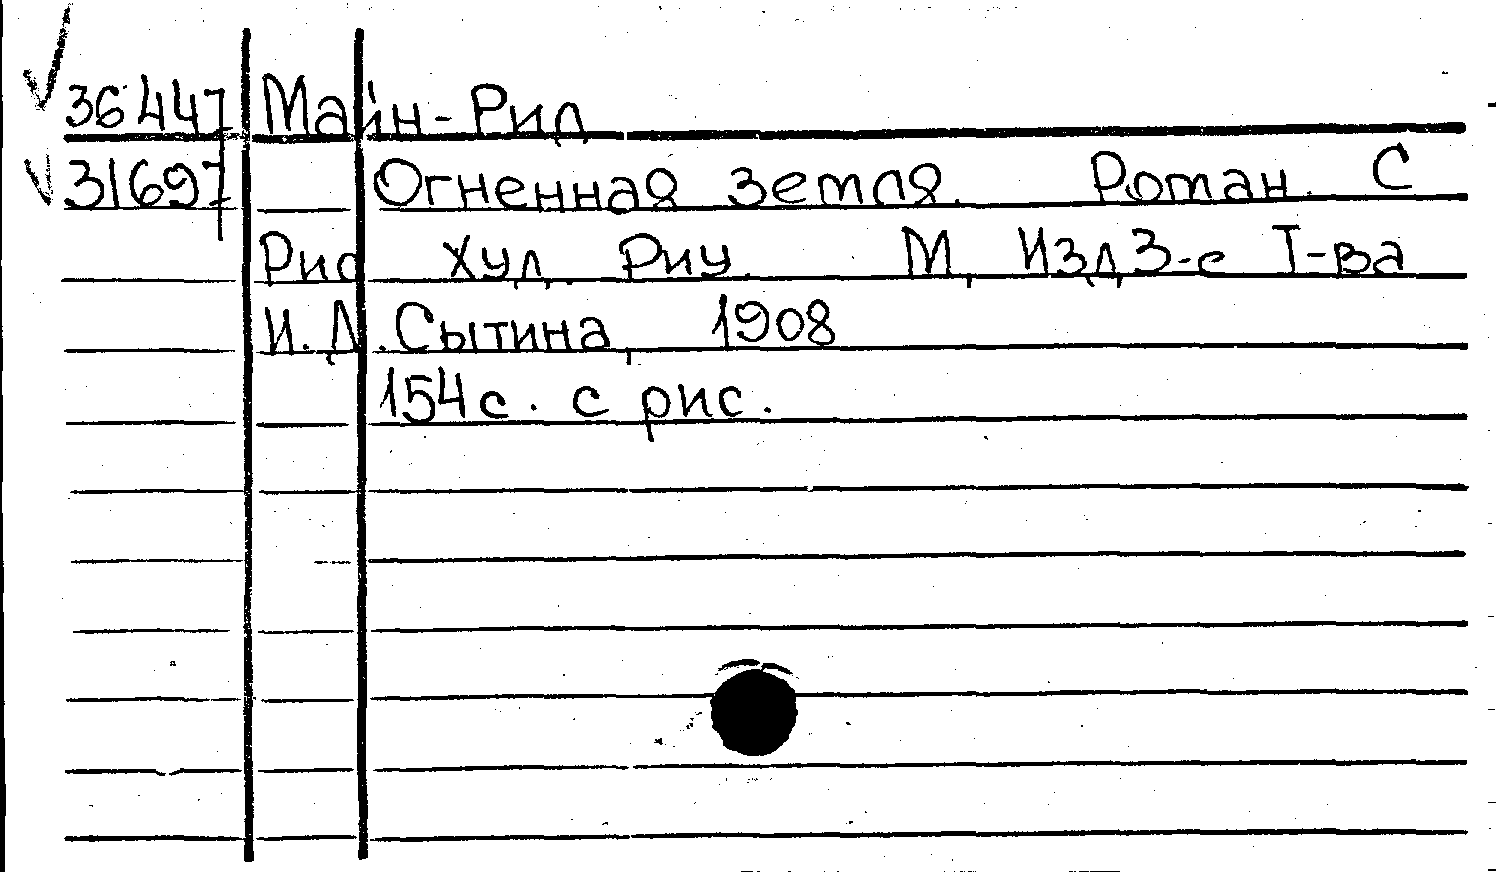 36447 Майн-Рид
31697 Огненная земля. Роман. С
Рис Худ. Риу. М, Изд 3-е Т-ва
И.Д. Сытина, 1908
154 с. с рис.